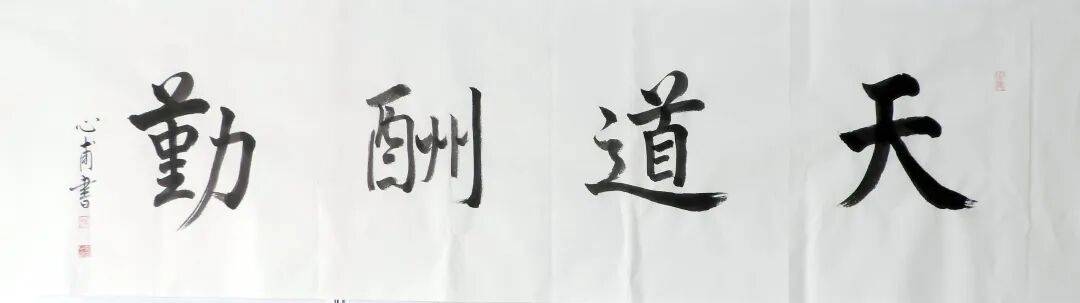 天道酬勤
心甫書